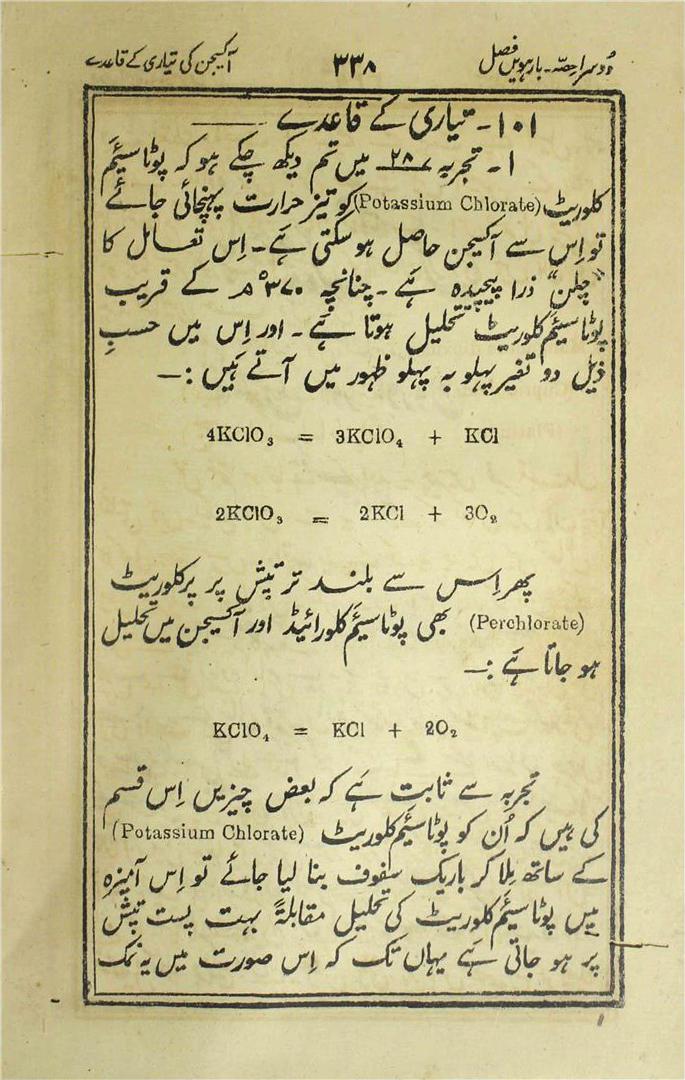 دُوسرا حِصّہ۔ بارہویں فصل
۳۳۸
آکسیجن کی تیاری کے قاعدے
۱۰۱۔ تیاری کے قاعدے ——
۱۔ تجربہ ۲۸ میں تم دیکھ چکے ہو کہ پوٹاسیئم
کلوریٹ (Potassium Chlorate) کو تیز حرارت پہنچائی جائے
تو اِس سے آکسیجن حاصل ہو سکتی ہے۔ اِس تعامل کا
”چلن“ ذرا پیچیدہ ہے۔ چنانچہ ۳۷۰°م کے قریب
پوٹاسیئم کلوریٹ تحلیل ہوتا ہے۔ اور اِس میں حسبِ
ذیل دو تغیر پہلو بہ پہلو ظہور میں آتے ہیں :—
4KClO₃ = 3KClO₄ + KCl
2KClO₃ = 2KCl + 3O₂
پھر اِس سے بلند تر تپش پر پرکلوریٹ
(Perchlorate) بھی پوٹاسیئم کلورائیڈ اور آکسیجن میں تحلیل
ہو جاتا ہے :—
KClO₄ = KCl + 2O₂
تجربہ سے ثابت ہے کہ بعض چیزیں اِس قسم
کی ہیں کہ اُن کو پوٹاسیئم کلوریٹ (Potassium Chlorate)
کے ساتھ مِلا کر باریک سفوف بنا لیا جائے تو اِس آمیزہ
میں پوٹاسیئم کلوریٹ کی تحلیل مقابلۃً بہت پست تپش
پر ہو جاتی ہے یہاں تک کہ اِس صورت میں یہ نمک